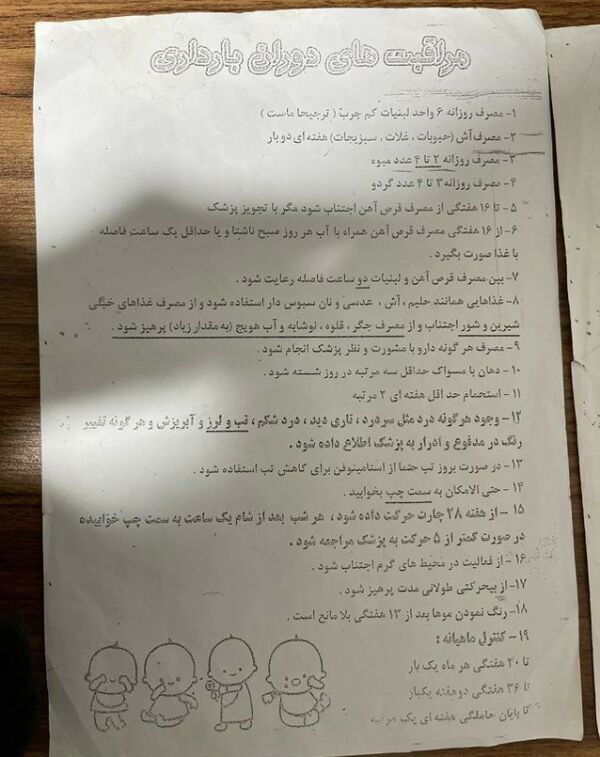 مراقبت های دوران بارداری
۱- مصرف روزانه ۶ واحد لبنیات کم چرب ( ترجیحا ماست )
۲- مصرف آش (حبوبات ، غلات ، سبزیجات) هفته ای دو بار
۳- مصرف روزانه ۲ تا ۴ عدد میوه
۴- مصرف روزانه ۳ تا ۴ عدد گردو
۵- تا ۱۶ هفتگی از مصرف قرص آهن اجتناب شود مگر با تجویز پزشک
۶- از ۱۶ هفتگی مصرف قرص آهن همراه با آب هر روز صبح ناشتا و یا حداقل یک ساعت فاصله
با غذا صورت بگیرد .
۷- بین مصرف قرص آهن و لبنیات دو ساعت فاصله رعایت شود .
۸- غذاهایی همانند حلیم ، آش ، عدسی و نان سبوس دار استفاده شود و از مصرف غذاهای خیلی
شیرین و شور اجتناب و از مصرف جگر ، قلوه ، نوشابه و آب هویج (به مقدار زیاد) پرهیز شود .
۹- مصرف هر گونه دارو با مشورت و نظر پزشک انجام شود .
۱۰- دهان با مسواک حداقل سه مرتبه در روز شسته شود .
۱۱- استحمام حد اقل هفته ای ۲ مرتبه
۱۲- وجود هر گونه درد مثل سردرد ، تاری دید ، درد شکم ، تب و لرز و آبریزش و هر گونه تغییر
رنگ در مدفوع و ادرار به پزشک اطلاع داده شود .
۱۳- در صورت بروز تب حتما از استامینوفن برای کاهش تب استفاده شود .
۱۴- حتی الامکان به سمت چپ بخوابید .
۱۵- از هفته ۲۸ چارت حرکت داده شود ، هر شب بعد از شام یک ساعت به سمت چپ خوابیده
در صورت کمتر از ۵ حرکت به پزشک مراجعه شود .
۱۶- از فعالیت در محیط های گرم اجتناب شود .
۱۷- از بیحرکتی طولانی مدت پرهیز شود .
۱۸- رنگ نمودن موها بعد از ۱۳ هفتگی بلا مانع است .
۱۹- کنترل ماهیانه :
تا ۲۰ هفتگی هر ماه یک بار
تا ۳۶ هفتگی دو هفته یکبار
تا پایان حاملگی هفته ای یک مرتبه